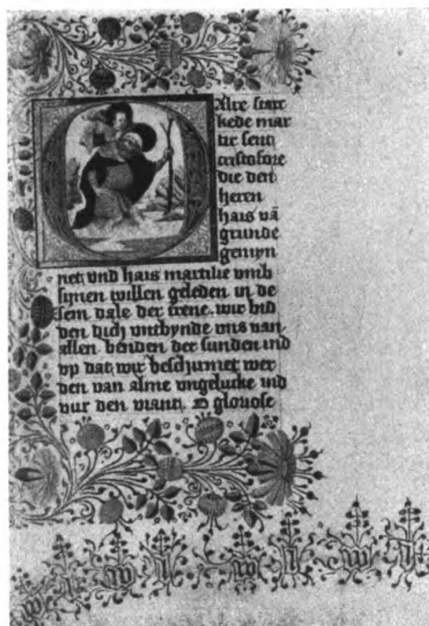 Alre starc
kede mar
tir sent
cristofore
die den
heren
hais vā
grunde
gemyn
net vnd hais martilie vmb
sinen willen geleden in de
sem dale der trene. wir bid
den dich vntbynde vns van
allen benden der sunden ind
vp dat wir beschirmet wer
den van alme vngelucke ind
vur den viant. O gloriose